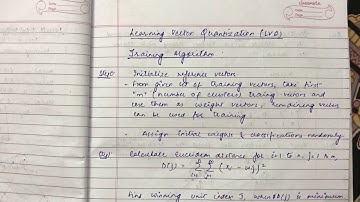 Learning Vector Quantization (LVQ)
Training Algorithm
Step0: Initialize reference vectors
- From given set of training vectors, take first
"m" (number of clusters) training vectors and
use them as weight vectors, remaining vectors
can be used for training.
- Assign initial weights & classifications randomly
Calculate Euclidean distance for i=1 to n, j=1 to m,
D(j) = Σ Σ (xi - wij)²
find winning unit index J, when D(J) is minimum